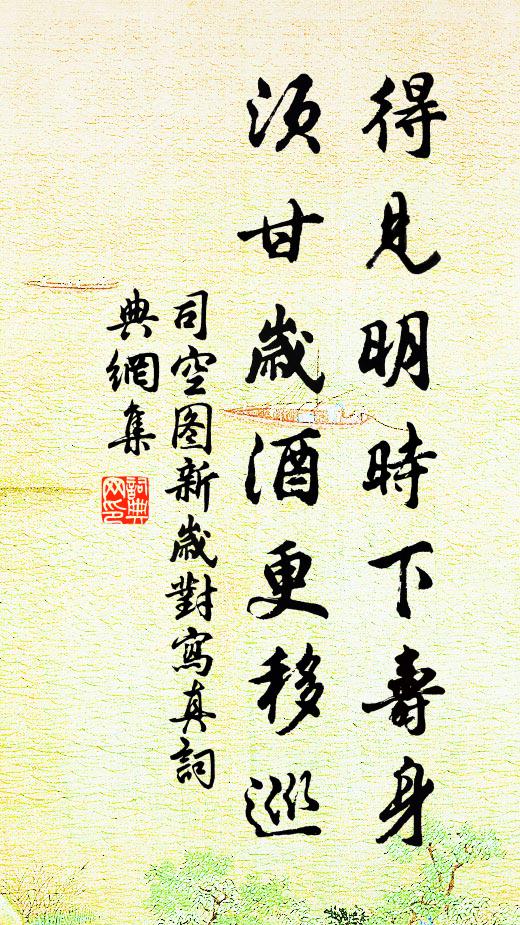 得見明時下壽身
須甘歲酒更移巡
司空图新歲對寫真詞
典網集
詞典網印